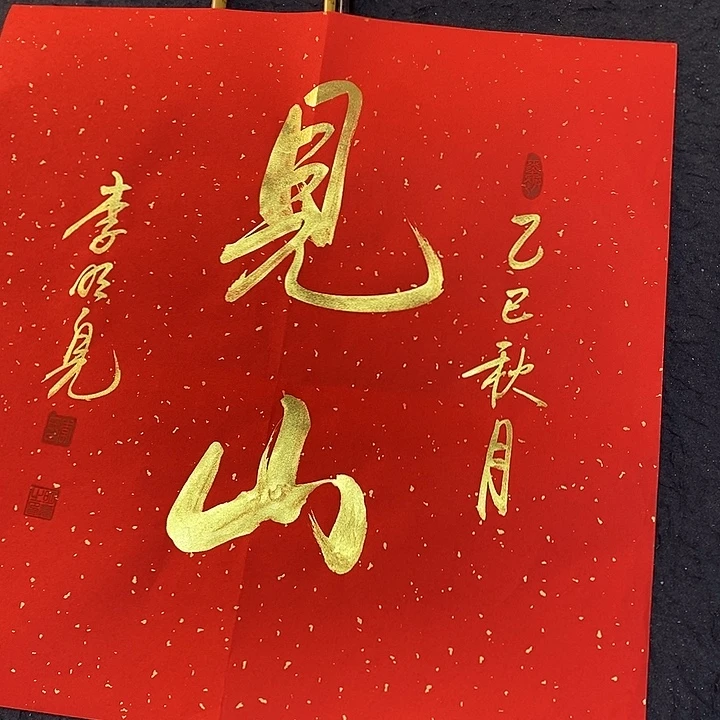 乙巳秋月
見山
李明見